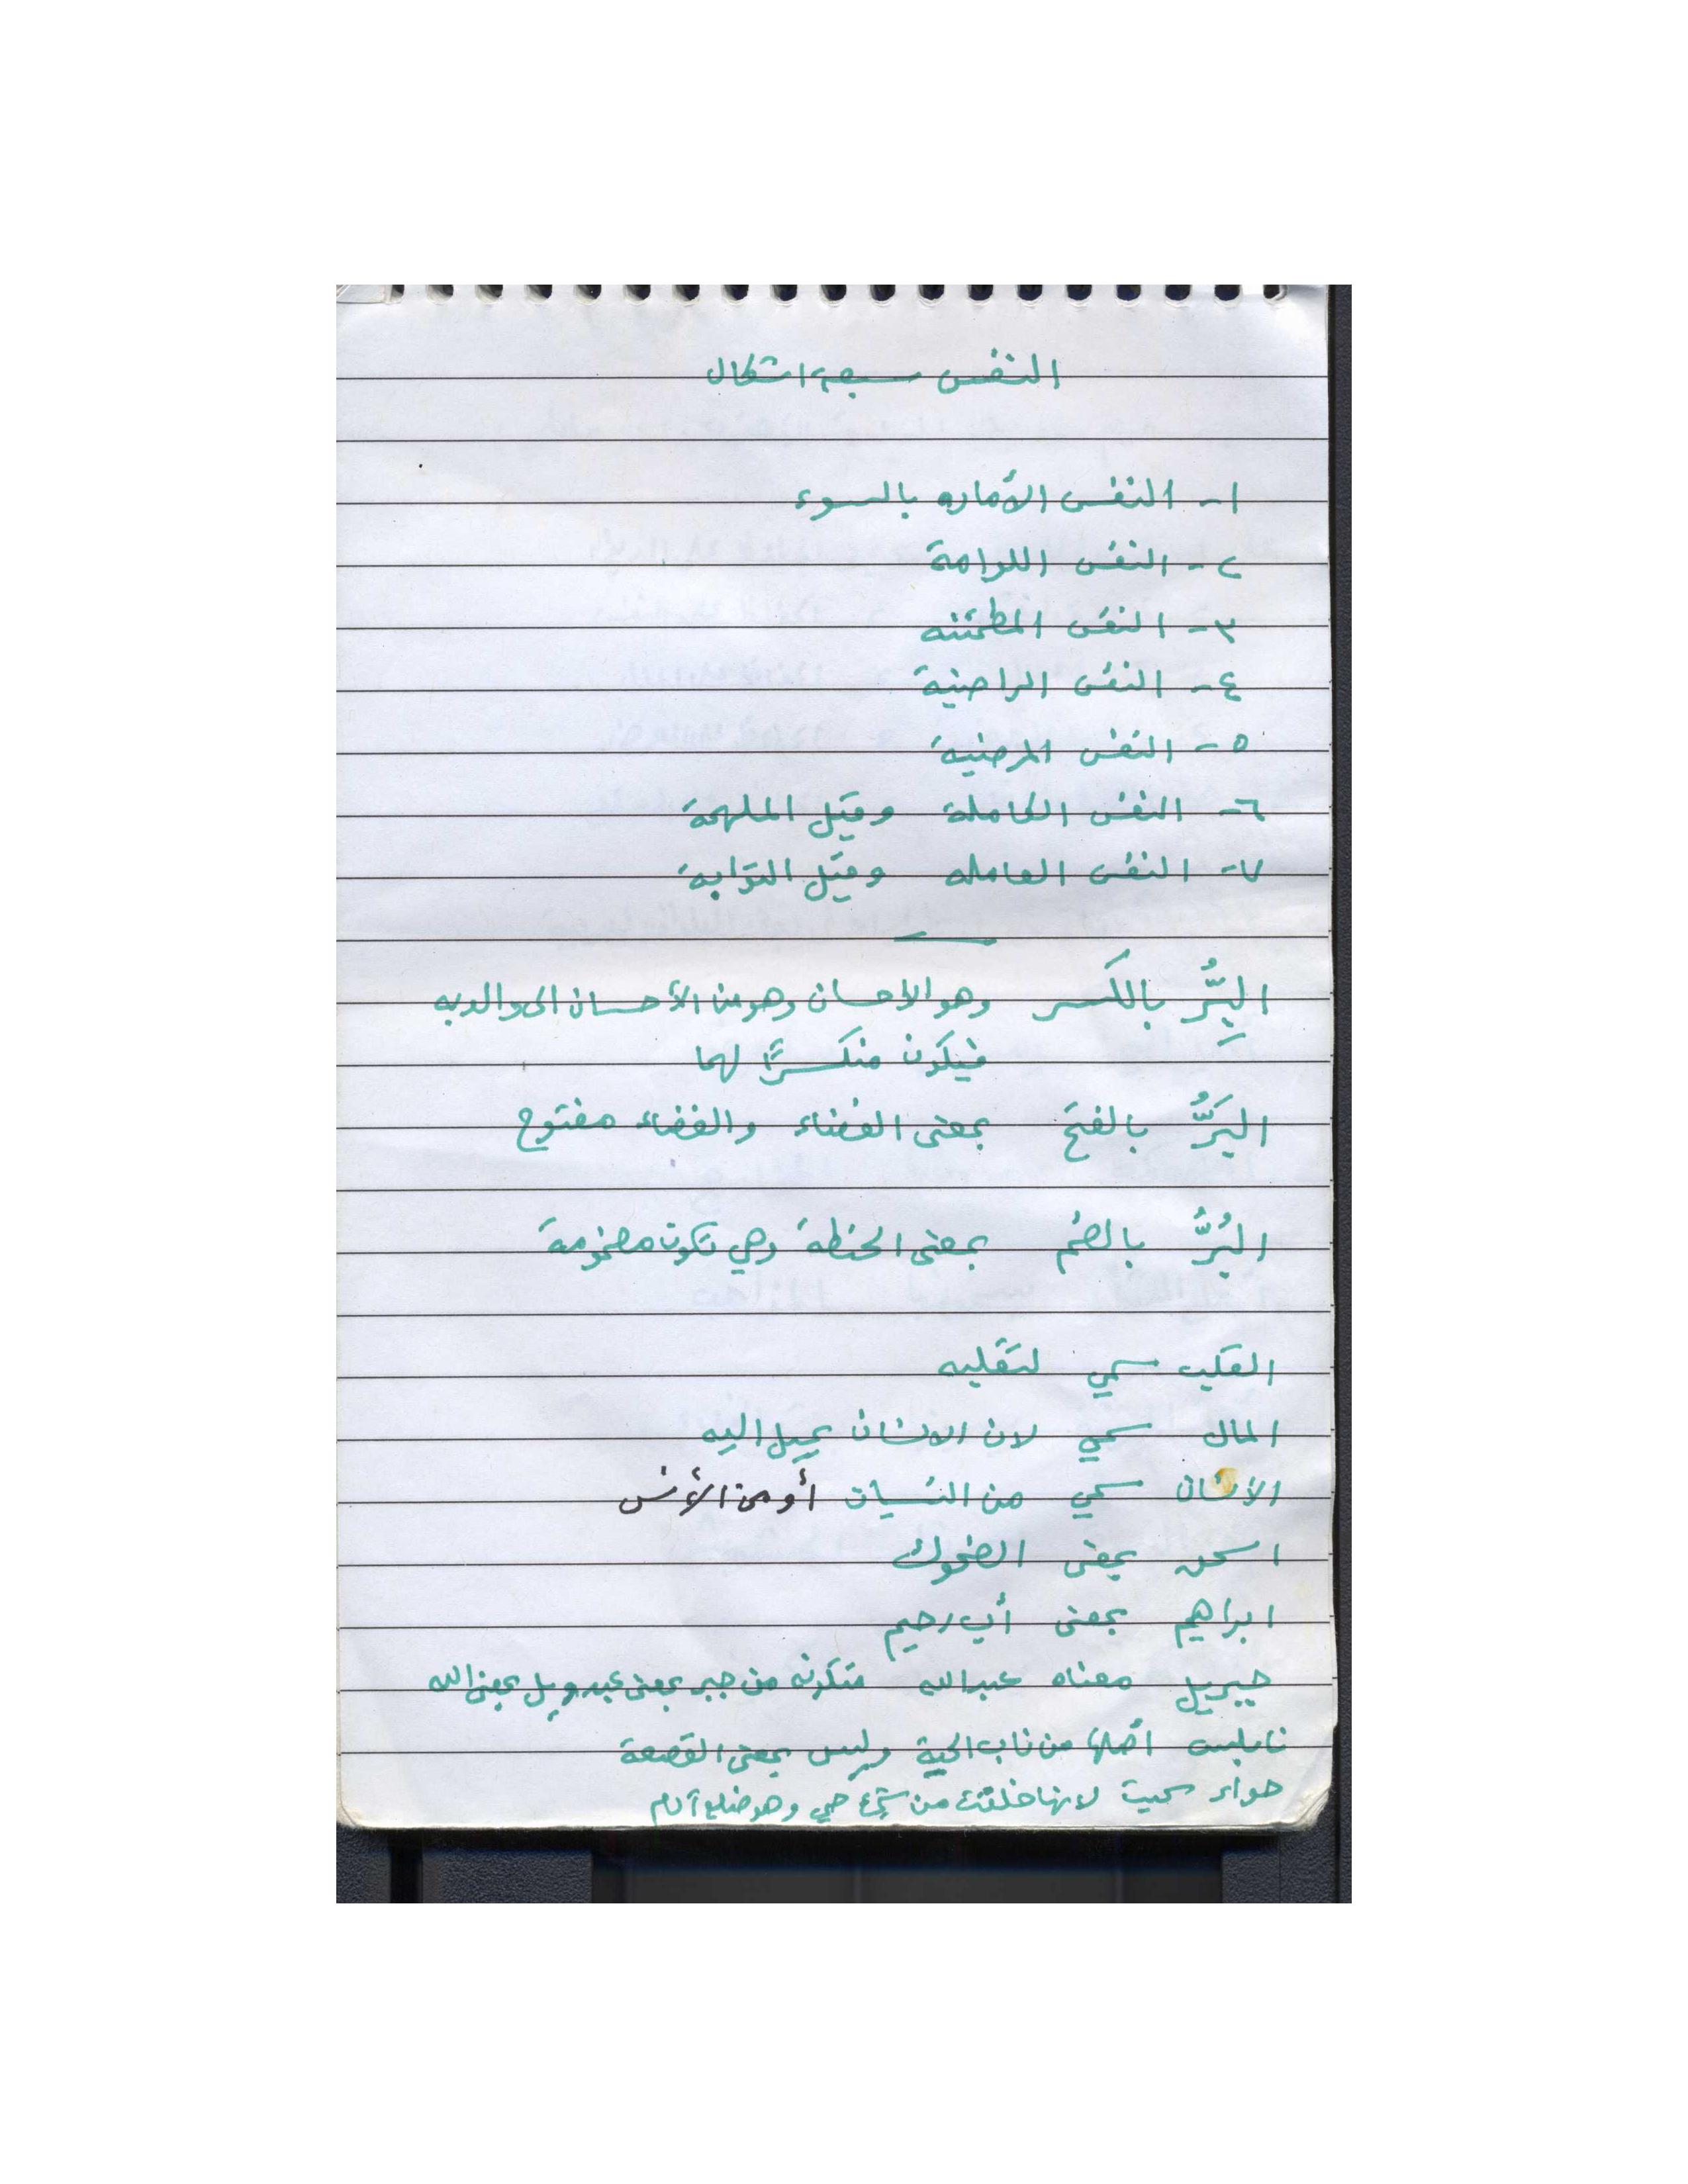 النفس سبعة اشكال
١- النفس الأماره بالسوء
٢- النفس اللوامة
٣- النفس المطمئنه
٤- النفس الراضية
٥- النفس المرضية
٦- النفس الكاملة وقيل الملهمة
٧- النفس العامله وقيل التوابة
البِرُّ بالكَسر وهو الاحسان وهو من الأحسان الى والديه
فيكون منكسرًا لهما
البَرُّ بالفتح بمعنى الفضاء والفضاء مفتوح
البُرُّ بالضم بمعنى الحنطة وهي تكون مضمومة
القلب سمي لتقلبه
المال سمي لان الانسان يميل اليه
الأنسان سمي من النسيان أو من الأنس
اسحق بمعنى الضحوك
ابراهيم بمعنى أب رحيم
جبريل معناه عبدالله متكونه من جبر بمعنى عبد ويل بمعنى الله
نابلس أصلها من ناب الحية وليس بمعنى القصعة
حواء سميت لانها خلقت من شيء حي وهو ضلع آدم